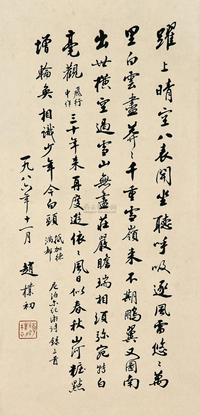 躍上晴空八表開坐聽呼吸逐風雷悠悠萬
里白雲盡莽莽千重雪嶺來不期鵬翼又圖南
出世橫空過雪山無盡莊嚴瞻瑞相須彌宛轉白
毫觀 飛行中作 三十年來再度遊依依風日似春秋山河粧點
增輪奐相識少年今白頭 抵加德滿都
尼泊爾紀游詩錄三首
一九八六年十一月 趙樸初